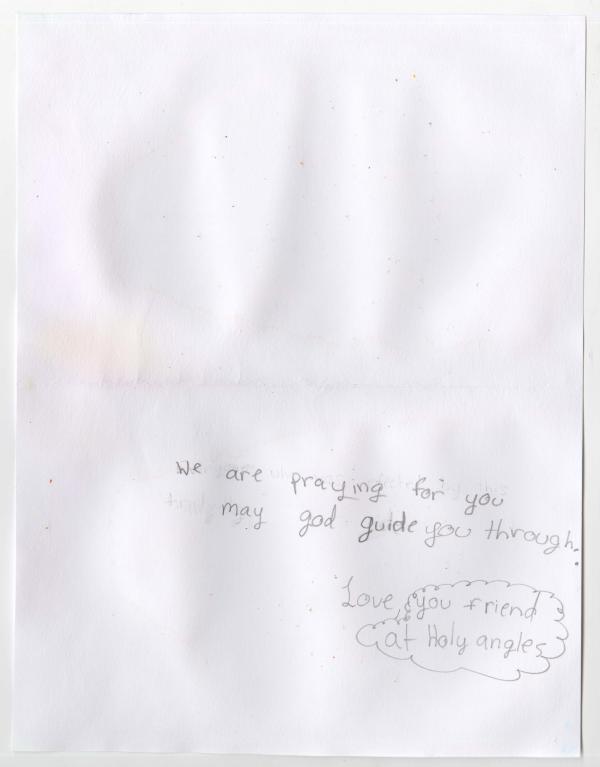 We are praying for you
may god guide you through.
Love, you friend
at Holy angles